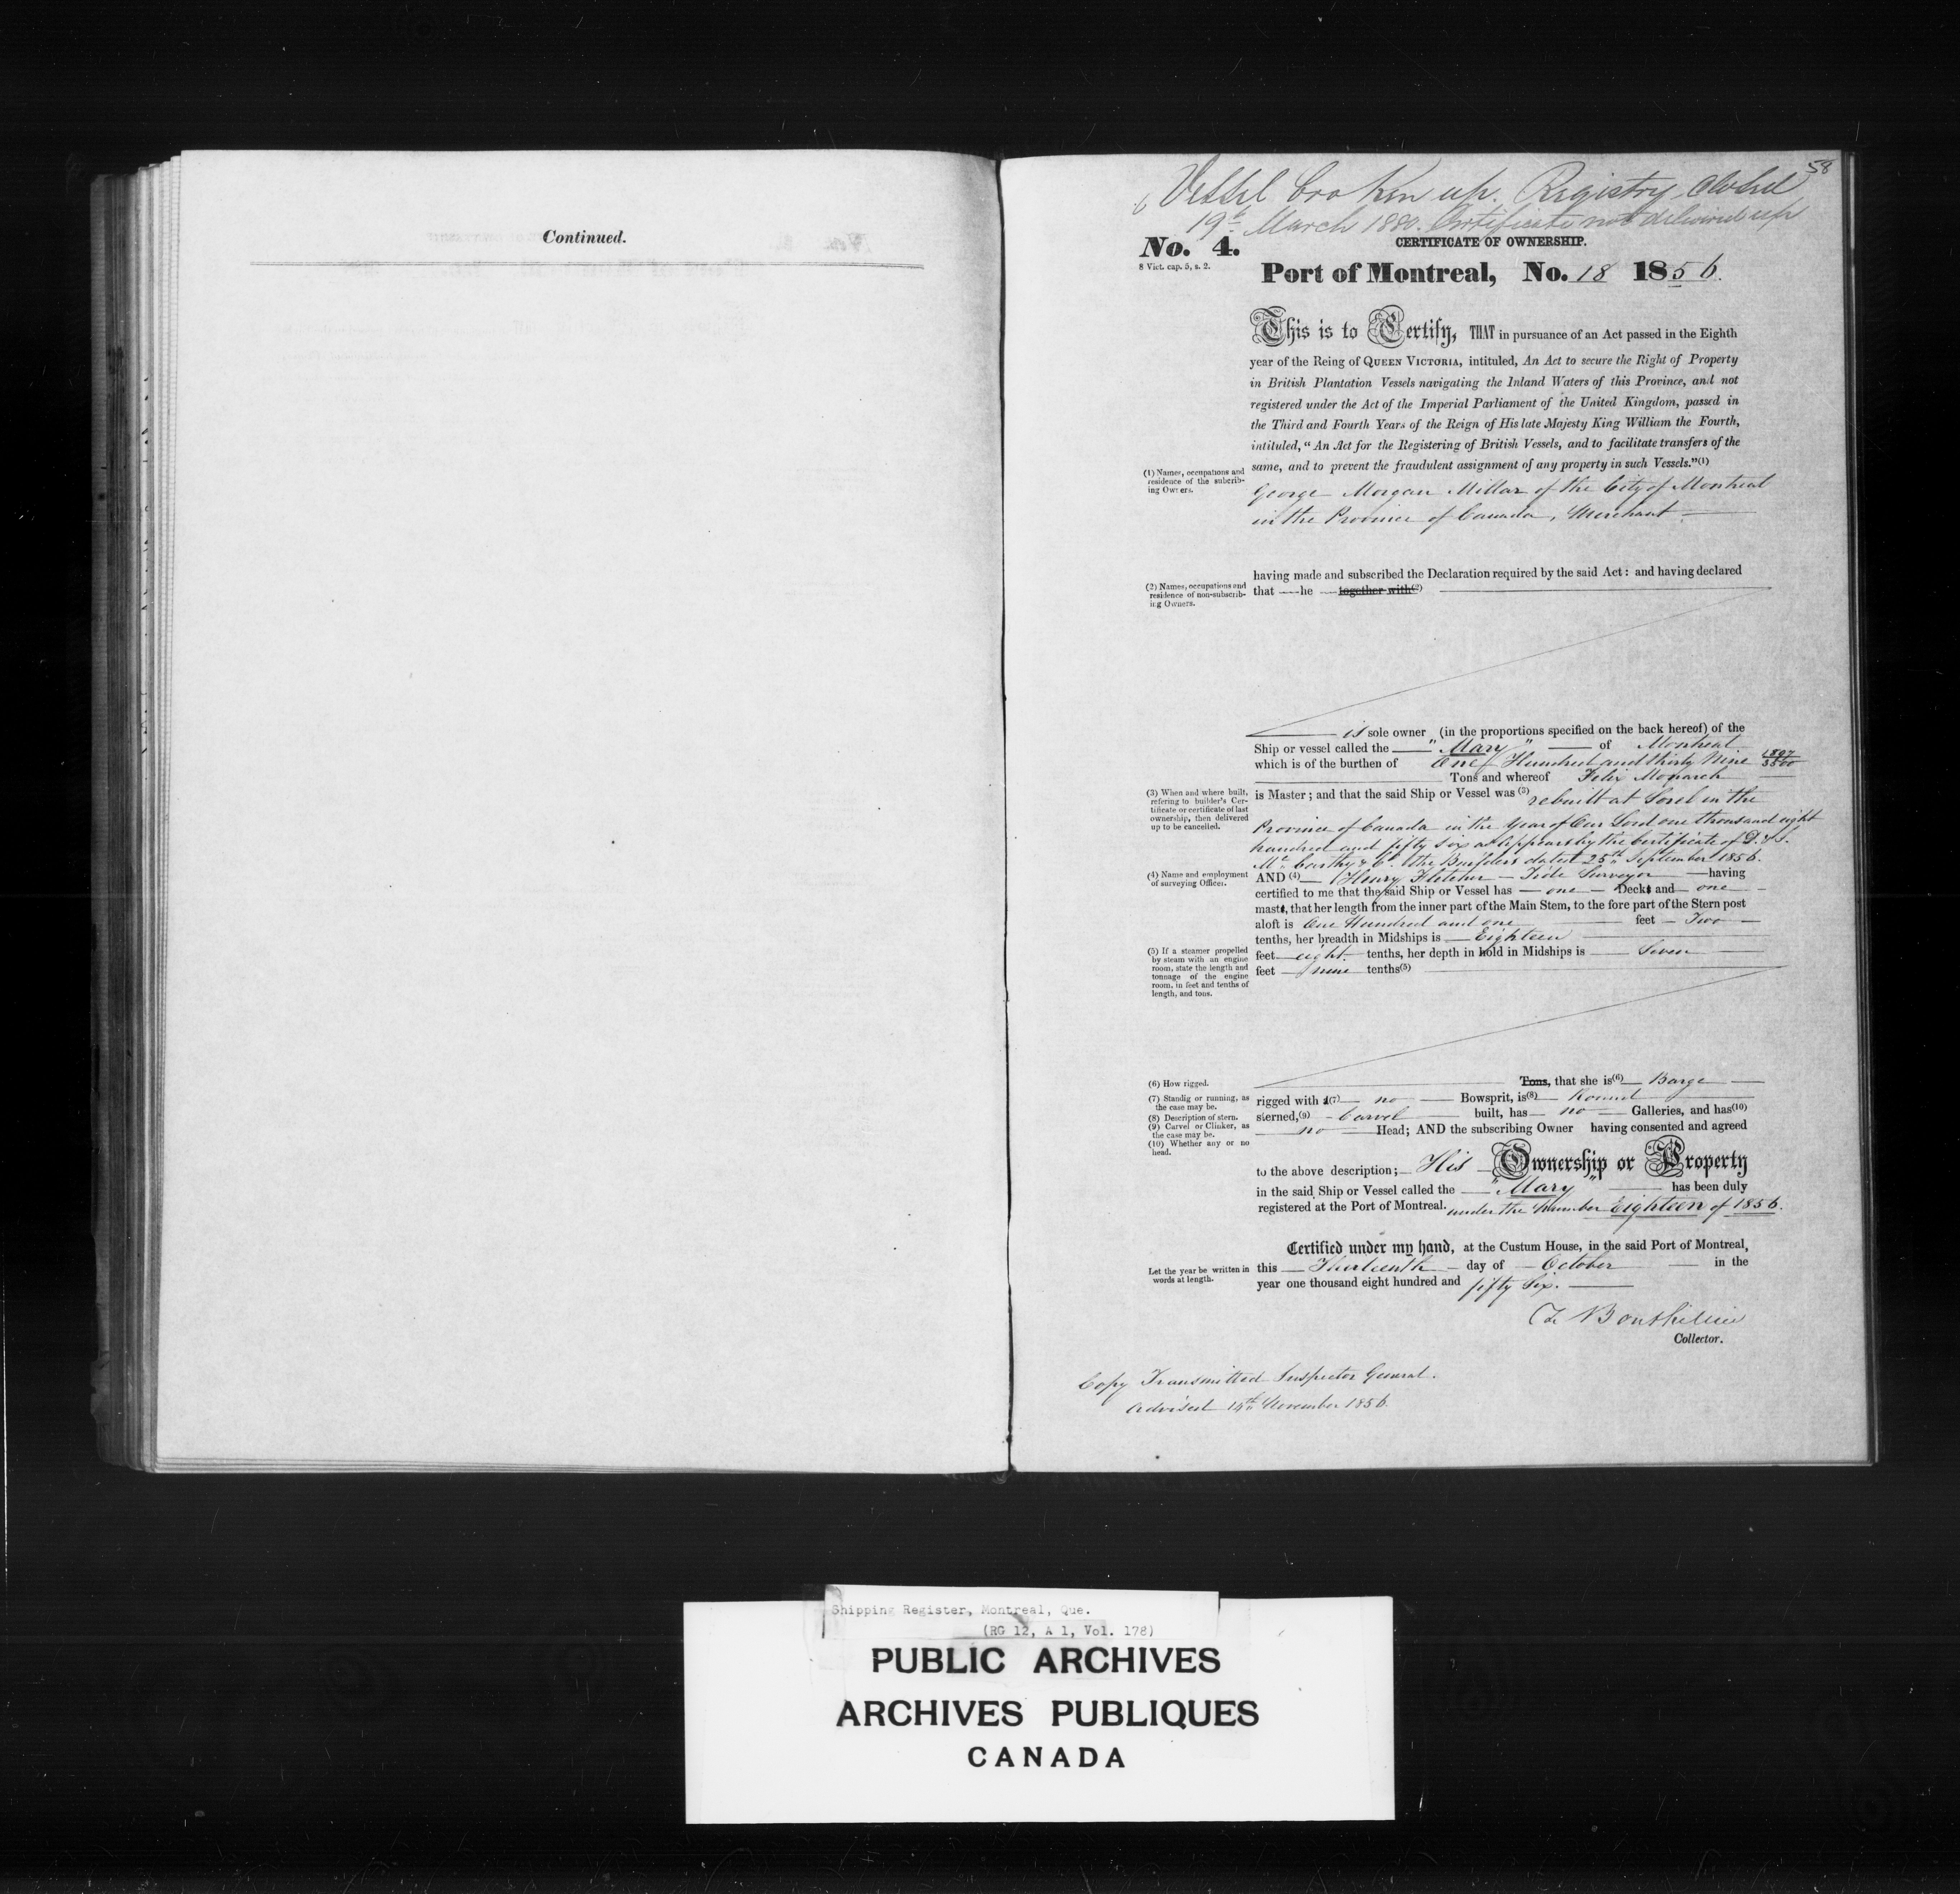 Continued.
58
Vessel broken up. Registry closed
19th March 1880. Certificate not delivered up
No. 4.
CERTIFICATE OF OWNERSHIP.
8 Vict. cap. 5, s. 2.
Port of Montreal, No. 18 1856.
This is to Certify, THAT in pursuance of an Act passed in the Eighth
year of the Reing of QUEEN VICTORIA, intituled, An Act to secure the Right of Property
in British Plantation Vessels navigating the Inland Waters of this Province, and not
registered under the Act of the Imperial Parliament of the United Kingdom, passed in
the Third and Fourth Years of the Reign of His late Majesty King William the Fourth,
intituled, "An Act for the Registering of British Vessels, and to facilitate transfers of the
same, and to prevent the fraudulent assignment of any property in such Vessels."(1)
(1) Names, occupations and
residence of the subcrib-
ing Owners.
George Morgan Millar of the City of Montreal
in the Province of Canada, Merchant
having made and subscribed the Declaration required by the said Act: and having declared
(2) Names, occupations and
residence of non-subscrib-
ing Owners.
that he together with(2)
is sole owner (in the proportions specified on the back hereof) of the
Ship or vessel called the "Mary" of Montreal
which is of the burthen of One Hundred and thirty Nine
Tons and whereof Felix Monarch
(3) When and where built,
refering to builder's Cer-
tificate or certificate of last
ownership, then delivered
up to be cancelled.
is Master; and that the said Ship or Vessel was (3) rebuilt at Sorel in the
Province of Canada in the Year of Our Lord one thousand eight
hundred and fifty six as appears by the Certificate of D. & J.
McCarthy & Co. the Builders dated 25th September 1856.
(4) Name and employment
of surveying Officer.
AND (4) Henry Fletcher Tide Surveyor having
certified to me that the said Ship or Vessel has one Decks and one
masts, that her length from the inner part of the Main Stem, to the fore part of the Stern post
aloft is One Hundred and one feet Two
tenths, her breadth in Midships is Eighteen
(5) If a steamer propelled
by steam with an engine
room, state the length and
tonnage of the engine
room, in feet and tenths of
length, and tons.
feet eight tenths, her depth in hold in Midships is Seven
feet nine tenths(5)
(6) How rigged.
Tons, that she is(6) Barge
(7) Standig or running, as
the case may be.
rigged with a(7) no Bowsprit, is(8) Round
(8) Description of stern.
sterned,(9) Carvel built, has no Galleries, and has(10)
(9) Carvel or Clinker, as
the case may be.
no Head; AND the subscribing Owner having consented and agreed
(10) Whether any or no
head.
to the above description; His Ownership or Property
in the said Ship or Vessel called the "Mary" has been duly
registered at the Port of Montreal. under the Number Eighteen of 1856.
Certified under my hand, at the Custum House, in the said Port of Montreal,
Let the year be written in
words at length.
this Thirteenth day of October in the
year one thousand eight hundred and fifty Six.
Collector.
Copy Transmitted Inspector General.
Advised 14th November 1856.
Shipping Register, Montreal, Que.
(RG 12, A 1, Vol. 178)
PUBLIC ARCHIVES
ARCHIVES PUBLIQUES
CANADA